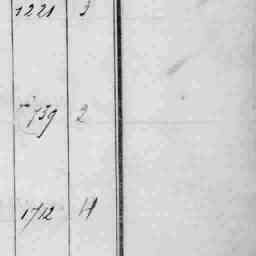 1221 3
739 2
1712 4